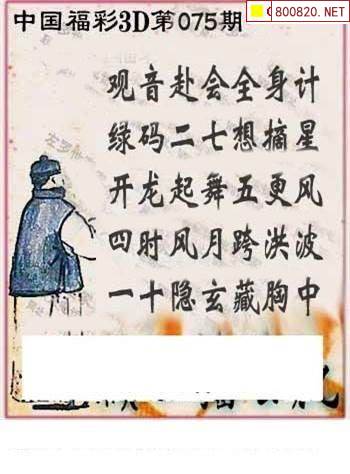 800820.NET
中国福彩3D第075期
观音赴会全身计
绿码二七想摘星
开龙起舞五更风
四时风月跨洪波
一十隐玄藏胸中